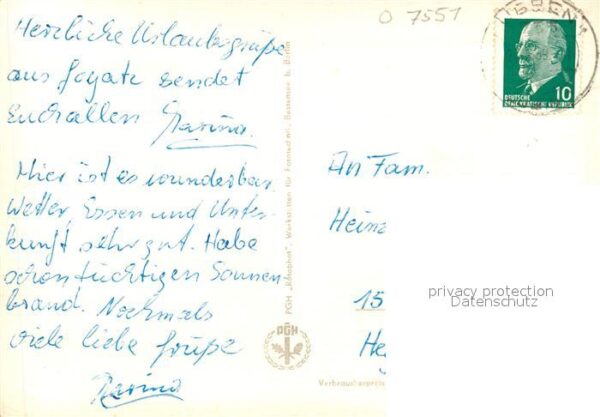 O 7551
Herzliche Urlaubsgrüße
aus sendet
Euch allen
Hier ist es wunderbar,
Wetter, Essen und Unter-
kunft sehr gut. Habe
schon tüchtigen Sonnen
brand. Nochmals
viele liebe Grüße
An Fam.
Heinz
15
He
10
DEUTSCHE
DEMOKRATISCHE REPUBLIK
PGH „Rotophot", Werkstätten für Fototechnik, Bestensee b. Berlin
PGH
privacy protection
Datenschutz